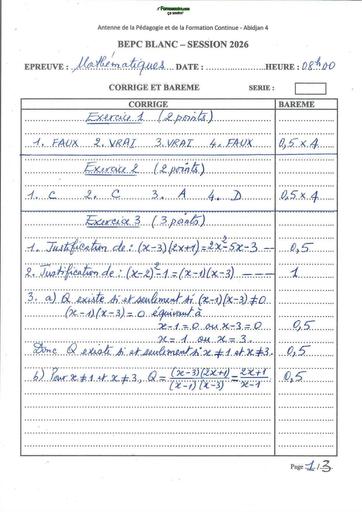 Fomesoutra.com
ça soutra !
Antenne de la Pédagogie et de la Formation Continue - Abidjan 4
BEPC BLANC – SESSION 2026
EPREUVE : Mathématiques DATE : HEURE : 08h00
CORRIGE ET BAREME SERIE :
CORRIGE BAREME
Exercice 1 (2 points)
1. FAUX 2. VRAI 3. VRAI 4. FAUX 0,5 x 4
Exercice 2 (2 points)
1. C 2. C 3. A 4. D 0,5 x 4
Exercice 3 (3 points)
1. Justification de : (x-3)(2x+1)=2x²-5x-3 0,5
2. Justification de : (x-2)²-1=(x-1)(x-3) 1
3. a) Q existe si et seulement si (x-1)(x-3)≠0
(x-1)(x-3)=0 équivaut à
x-1=0 ou x-3=0 0,5
x=1 ou x=3.
Donc Q existe si et seulement si x≠1 et x≠3. 0,5
b) Pour x≠1 et x≠3, Q = (x-3)(2x+1)/(x-1)(x-3) = 2x+1/x-1 0,5
Page 1/3